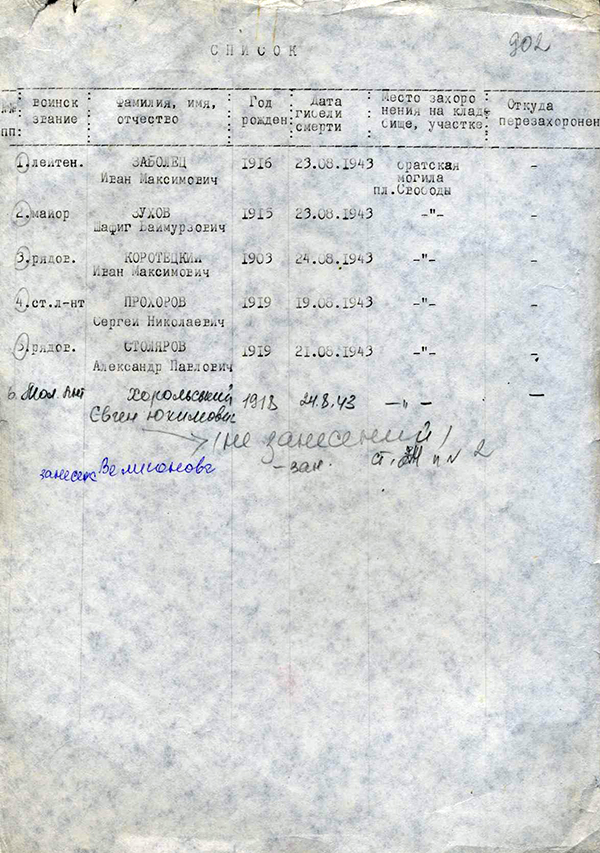 902
СПИСОК
№№ пп: воинск звание Фамилия, имя, отчество Год рожден. Дата гибели смерти Место захоро нения на клад бище, участке Откуда перезахоронен
1. лейтен. ЗАБОЛЕЦ 1916 23.08.1943 братская –
Иван Максимович могила
пл.Свободы
2. майор ЗУХОВ 1915 23.08.1943 –"– –
Шафиг Баймурзович
3. рядов. КОРОТЕЦКИЙ 1903 24.08.1943 –"– –
Иван Максимович
4. ст.л-нт ПРОХОРОВ 1919 19.08.1943 –"– –
Сергей Николаевич
5. рядов. СТОЛЯРОВ 1919 21.08.1943 –"– –
Александр Павлович
6. Мол. лнт Хорольский 1918 24.8.43 –"– –
Євген Юхимович
/не занесений/
– зан. ст. п № 2
занесек